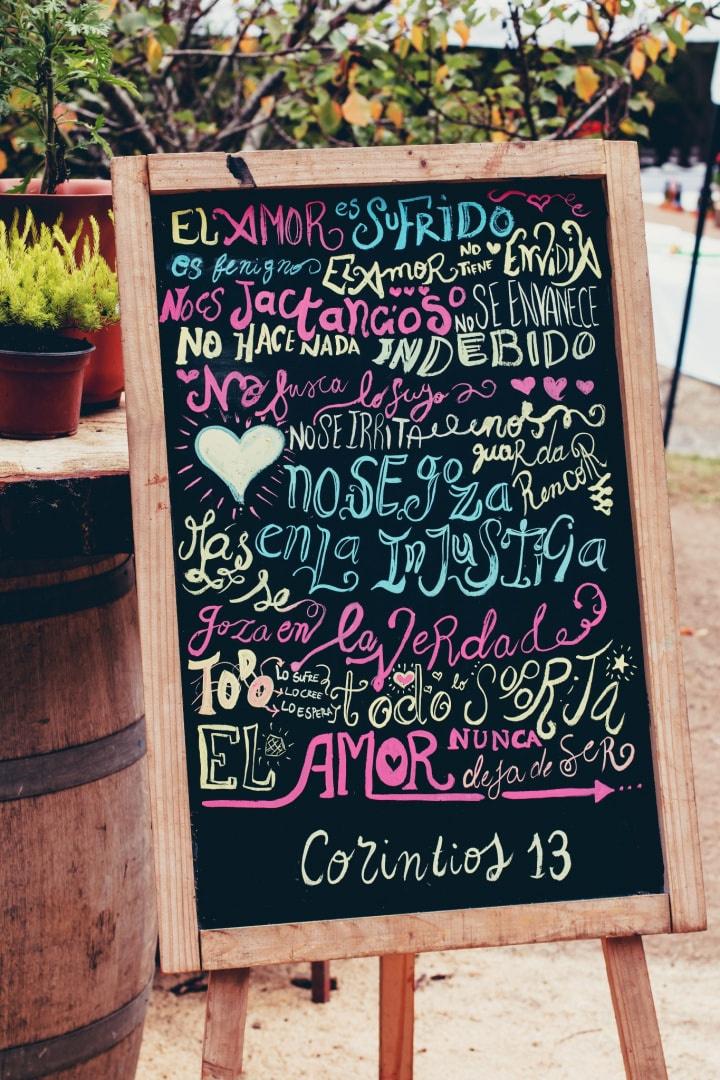 EL AMOR es SUFRIDO
es benigno EL AMOR NO TIENE ENVIDIA
NO ES Jactancioso NO SE ENVANECE
NO HACE NADA INDEBIDO
No busca lo suyo
NO SE IRRITA no guarda Rencor
NO SE goza
en La INJUSTICIA
Más se
goza en la Verdad
TODO LO SUFRE LO CREE LO ESPERA todo lo SOPORTA
EL AMOR NUNCA deja de SER
Corintios 13